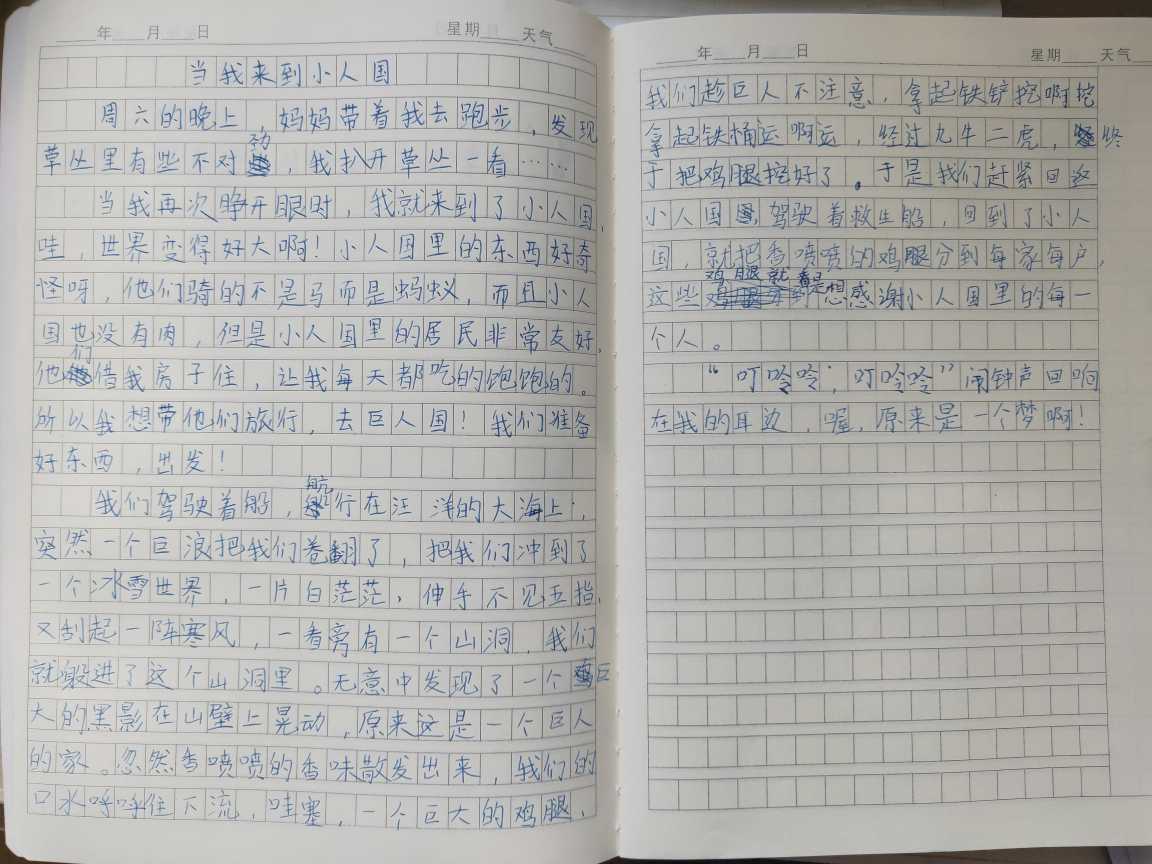 年 月 日 星期 天气
当我来到小人国
周六的晚上，妈妈带着我去跑步，发现
草丛里有些不对劲，我扒开草丛一看……
当我再次睁开眼时，我就来到了小人国，
哇，世界变得好大啊！小人国里的东西好奇
怪呀，他们骑的不是马而是蚂蚁，而且小人
国也没有肉，但是小人国里的居民非常友好，
他们借我房子住，让我每天都吃的饱饱的。
所以我想带他们旅行，去巨人国！我们准备
好东西，出发！
我们驾驶着船，航行在汪洋的大海上，
突然一个巨浪把我们卷翻了，把我们冲到了
一个冰雪世界，一片白茫茫，伸手不见五指，
又刮起一阵寒风，一看旁有一个山洞，我们
就躲进了这个山洞里。无意中发现了一个巨
大的黑影在山壁上晃动，原来这是一个巨人
的家。忽然香喷喷的香味散发出来，我们的
口水呼呼往下流，哇塞，一个巨大的鸡腿，
年 月 日 星期 天气
我们趁巨人不注意，拿起铁铲挖啊挖
拿起铁桶运啊运，经过九牛二虎，终
于把鸡腿挖好了。于是我们赶紧回这
小人国，驾驶着救生船，回到了小人
国，就把香喷喷的鸡腿分到每家每户，
这些鸡腿就是想感谢小人国里的每一
个人。
“叮呤呤，叮呤呤”闹钟声回响
在我的耳边，喔，原来是一个梦啊！